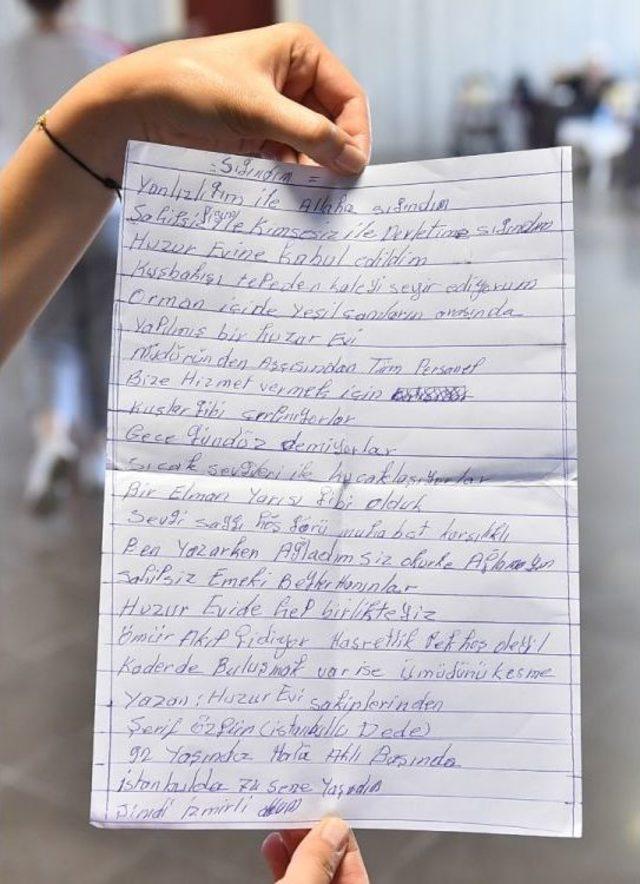 :Sığındım =
Yanlızlığım ile Allaha sığındım
Sahipsizliğim ile Kimsesiz ile Devletime sığındım
Huzur Evine Kabul edildim
Kuşbakışı tepeden kaleyi seyir ediyorum
Orman içinde yeşil çamların arasında
Yapılmış bir Huzur Evi
Müdüründen Aşçısından Tüm Personel
Bize Hizmet vermek için
Kuşlar gibi
Gece gündöz demiyorlar
Sıcak sevgileri ile kucaklaşıyorlar
Bir Elman Yarısı gibi olduk
Sevgi saygı hoş görü muhabat karşılıklı
Ben Yazarken Ağladım siz okurke Ağlamayın
Sahipsiz Emekli Beyler Hanımlar
Huzur Evide hep birlikteyiz
Ömür Akıp gidiyor Hasretlik Pek hoş deyil
Kaderde Buluşmak var ise ümüdünü kesme
Yazan: Huzur Evi sakinlerinden
Şerif Özgün (istanbullu Dede)
92 Yaşında Hala Aklı Başında
istanbulda 74 sene Yaşadım
Şimdi izmirli oldum